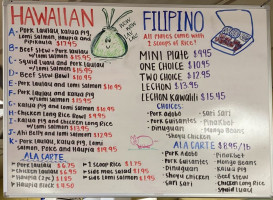 HAWAIIAN
HOW NOW LAU LAU
A- Pork Laulau, Kalua Pig,
Lomi Salmon, Haupia and
Pipikaula $17.95
B- Beef Stew, Pork Laulau
w/ Lomi Salmon $15.95
C- Squid Luau and Pork Laulau
w/ Lomi Salmon $15.95
D- Beef Stew Bowl $10.95
E- Pork Laulau and Lomi Salmon $10.95
F- Pork Laulau and Kalua Pig
w/ Lomi Salmon $15.95
G- Kalua Pig and Lomi Salmon $10.95
H- Chicken Long Rice Bowl $9.95
I- Kalua Pig and Chicken Long Rice
w/ Lomi Salmon $13.95
J- Ahi Belly and Lomi Salmon $12.95
K- Pork Laulau, Kalua Pig, Lomi
Salmon, Poke, and Haupia $19.95
ALA CARTE
Pork Laulau $6.75
Chicken Laulau $6.95
Haupia $.75
Haupia Block $9.50
1 Scoop Rice $1.75
Side Mac Salad $1.95
Side Lomi Salmon $1.95
FILIPINO
All plates come with
2 Scoops of Rice!
MINI PLATE $9.45
ONE CHOICE $10.95
TWO CHOICE $12.95
LECHON $13.95
LECHON KAWALI $15.95
CHOICES:
- Pork Adobo
- Pork Guisantes
- Dinuguan
- Shoyu Chicken
- Sari Sari
- Pinakbet
- Mungo Beans
ALA CARTE $8.95/LB
- Pork Adobo
- Pork Guisantes
- Dinuguan
- Shoyu Chicken
- Sari Sari
- Pinakbet
- Mungo Beans
- Kalua Pig
- Beef Stew
- Chicken Long Rice
- Squid Luau